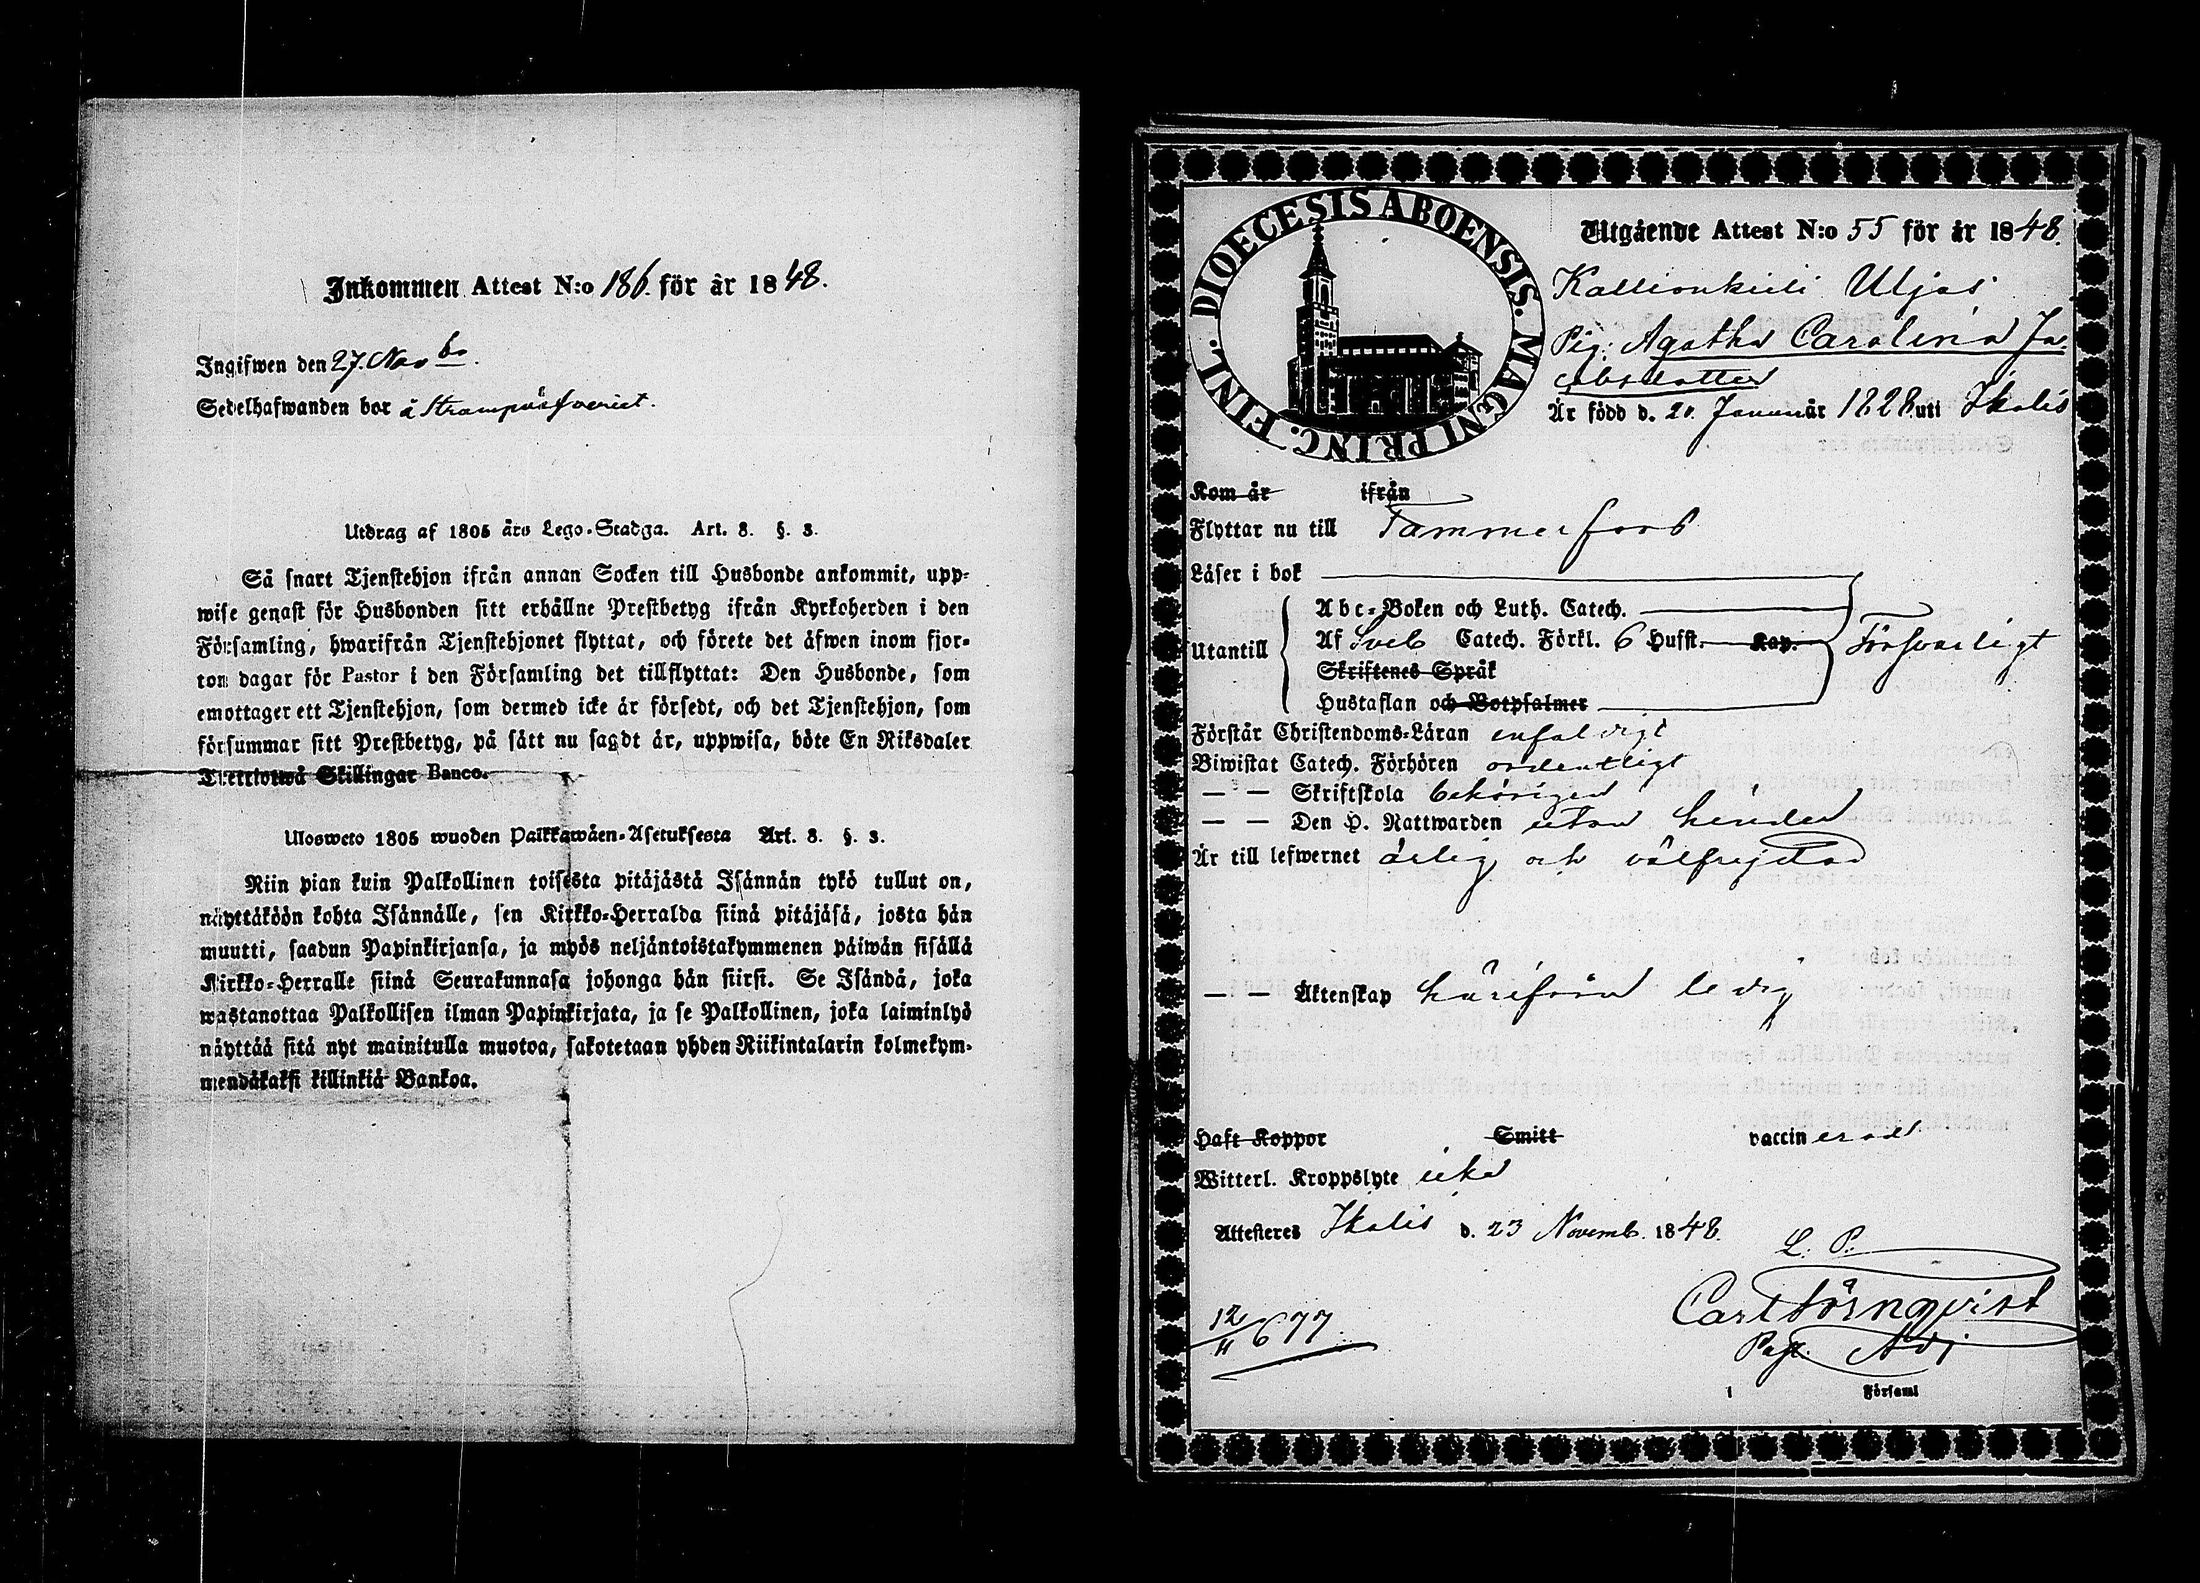 Inkommen Attest N:o 186. för år 1848.
Ingifwen den 27. Novbr.
Sedelhafwanden bor å Strumpväfveriet.
Utdrag af 1805 års Lego-Stadga. Art. 8. §. 3.
Så snart Tjenstehjon ifrån annan Socken till Husbonde ankommit, upp-
wise genast för Husbonden sitt erhållne Prestbetyg ifrån Kyrkoherden i den
Församling, hwarifrån Tjenstehjonet flyttat, och förete det äfwen inom fjor-
ton dagar för Pastor i den Församling det tillflyttat: Den Husbonde, som
emottager ett Tjenstehjon, som dermed icke är försedt, och det Tjenstehjon, som
försummar sitt Prestbetyg, på sätt nu sagdt är, uppwisa, böte En Riksdaler
Trettiotwå Skillingar Banco.
Ulosweto 1805 wuoden Palkkawäen-Asetuksesta Art. 8. §. 3.
Niin pian kuin Palkollinen toisesta pitäjästä Isännän tykö tullut on,
näyttäköön kohta Isännälle, sen Kirkko-Herralda siinä pitäjäsä, josta hän
muutti, saadun Papinkirjansa, ja myös neljäntoistakymmenen päiwän sisällä
Kirkko-Herralle siinä Seurakunnasa johonga hän siirsi. Se Isändä, joka
wastanottaa Palkollisen ilman Papinkirjata, ja se Palkollinen, joka laiminlyö
näyttää sitä nyt mainitulla muotoa, sakotetaan yhden Riikintalarin kolmekym-
mendäkaksi killinkiä Bankoa.
DIOECESIS ABOENSIS. MAGNI PRINC. FINL.
Utgående Attest N:o 55 för år 1848.
Kallionkieli Uljas
Pig. Agatha Carolina Ja-
cobsdotter
Är född d. 20. Januar år 1828 uti Ikalis
Kom år ifrån
Flyttar nu till Tammerfors
Läser i bok
Abc-Boken och Luth. Catech.
Utantill Af Sveb Catech. Förkl. 6 Hufst. Kap. Försvarligt
Skriftenes Språk
Hustaflan och Botpsalmer
Förstår Christendoms-Läran enfaldigt
Biwistat Catech. Förhören ordentligt
— — Skriftskola behörigen
— — Den H. Nattwarden utan hinder
Är till lefwernet ärlig och välfrejdad
— — Äktenskap härifrån ledig
Haft Koppor Smitt vaccinerad
Witterl. Kroppslyte icke
Attesteres Ikalis d. 23 Novemb. 1848.
L. P.
Carl Törnqvist
Past. Adj
12/11 677
i Församl